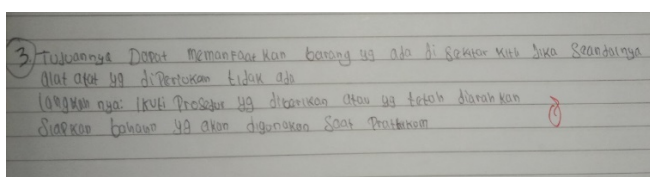 3. Tujuannya Dapat memanfaatkan barang yg ada di sekitar kita Jika Seandainya
alat alat yg diperlukan tidak ada
langkah nya: Ikuti Prosedur yg diberikan atau yg telah diarahkan
Siapkan bahan yg akan digunakan Saat Praktikum